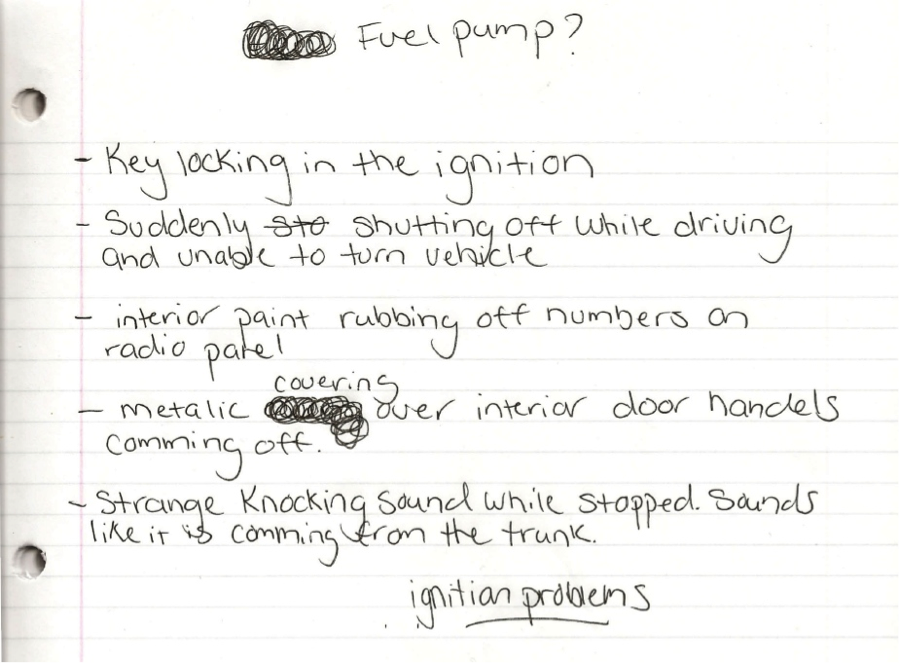 Fuel pump?
- Key locking in the ignition
- Suddenly sto shutting off while driving
and unable to turn vehicle
- interior paint rubbing off numbers on
radio panel
covering
- metalic over interior door handels
comming off.
- Strange Knocking sound while stopped. Sounds
like it is comming from the trunk.
ignitian problems